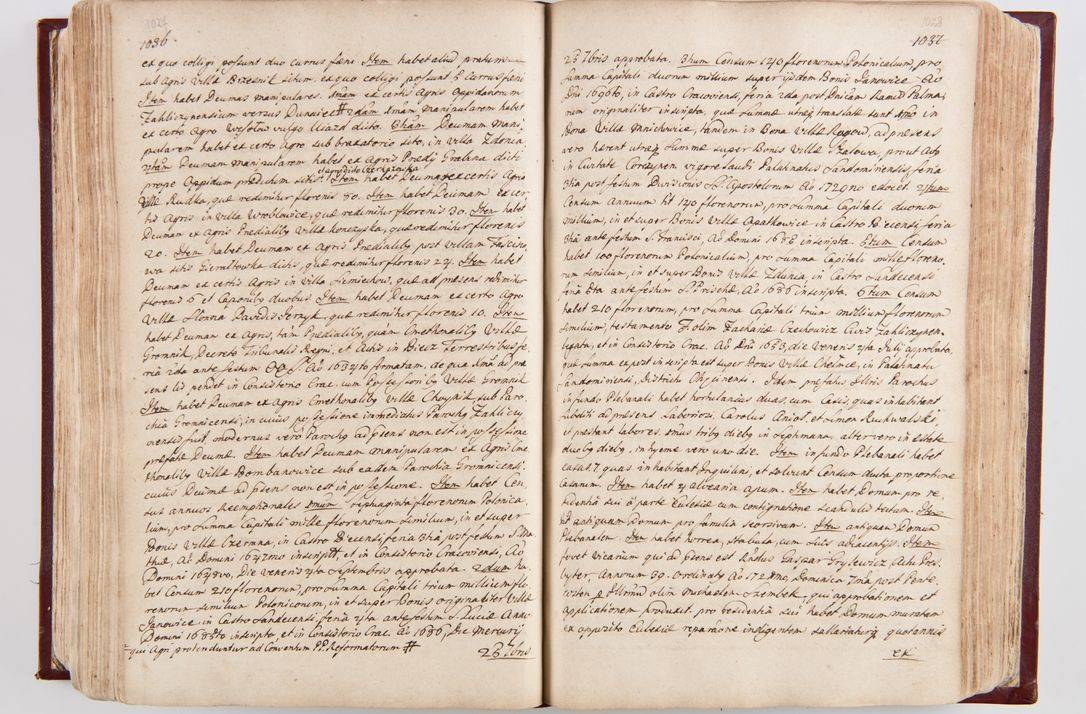 1027
1036.
ex quo colligi possunt duo currus fæni Item habet aliud pratum
sub agris Villæ Brzesnik situm, ex quo colligi possunt 6 currus fæni
Item habet Decimas manipulares. Imam ex certis Agris Oppidanorum
Zakliczynensium versus Dunaiec # 2dam Imam manipularem habet
ex certo Agro Wesołow vulgo Ulazd dicto. 3tiam Decimam mani-
pularem habet ex certo agro sub brazatorio sito, in villa Zdonia,
4tam Decimam manipularem habet ex Agris Prædij Gralana dicti
prope Oppidum prædictum sitis. Item habet Decimam ex certis Agris
Villæ Rudka, quæ redimitur florenis 30. Item habet Decimam ex cer-
tis Agris in Villa Wroblowice, quæ redimitur florenis 30. Item habet
Decimam ex Agris Prædialibus Villæ Konczyska, quæ redimitur florenis
20. Item habet Decimam ex Agris Prædialibus post Villam Fascisso-
wa sitis Pierzttowka dictis, quæ redimitur florenis 24. Item habet
Decimam ex certis Agris in Villa Siemiechow, quæ ad præsens redimitur
florenis 5 et Caponibus duobus. Item habet Decimam ex certo Agro
Villæ Słonna Pawdis Jerzyk, quæ redimitur florenis 10. Item
habet Decimam ex Agris, tam Prædialibus, quam Cmethonalibus Villæ
Gromnik, Decreto Tribunalis Regni, et Actis in Biecz Terrestribus fe-
ria 2da ante festum Ao 1634to firmatam, de qua ad præ
sens lis pendet in Consistorio Crac. cum Possessoribus Villæ Gromnik
Item habet Decimam ex Agris Cmethonalibus Villæ Choynik sub Paro-
chia Gromnicensi, in cuius possessione immediatus Parochus Zakliczy-
nensis fuit, modernus vero Parochus ad præsens non est in possessione
præfatæ Decimæ. Item habet Decimam manipularem ex Agris Cme-
thonalibus Villæ Bombanowice sub eadem Parochia Gromnicensi,
cuius Decimæ ad præsens non est in possessione. Item habet Cen-
sus annuos Reemptionales. Imum septuaginta florenorum Polonica-
lium, pro summa Capitali mille florenorum similium, in et super
Bonis Villæ Czermna, in Castro Biecensi, feria 3tia post festum S. Mat-
thiæ, Ao Domini 1647mo inscriptum, et in Consistorio Cracoviensi, Ao
Domini 1648vo, die veneris 4ta Septembris approbata. 2dum ha-
bet Censum 210 florenorum, pro summa Capitali trium millium flo-
renorum similium Polonicorum, in et super Bonis originaliter Villæ
Janowice in Castro Sandecensi, feria 4ta ante festum S. Luciæ Anno
Domini 1685to inscripto, et in Consistorio Crac. Ao 1686, die Mercurij
qui Agri protenduntur ad Conventum PP. Reformatorum #
28 7bris
1028
1037.
28 7bris approbata. 3tium Censum 140 florenorum Polonicalium, pro
summa Capitali duorum millium super iisdem Bonis Janowice Ao
Dni 1696to, in Castro Cracoviensi, feria 2da post Dnicam Ramis Palma-
rum originaliter inscripta, quæ summæ utræque translatæ sunt 1mo in
Bona Villæ Mnichowice, tandem in Bona Villæ Rzgow, ad præsens
vero hærent utræque summæ super Bonis Villæ Zasowa, prout Acto
in Civitate Corczyn. vigore laudi Palatinatus Sandomiriensis, feria
3tia post festum Divisionis SS. Apostolorum Ao 1729no exocet. 4tum
Censum Annuum hit 140 florenorum, pro summa Capitali duorum
millium, in et super Bonis Villæ Opatkowice in Castro Biecensi, feria
3tia ante festum S. Francisci, Ao Domini 1688 inscripta. 5tum Censum
habet 100 florenorum Polonicalium, pro summa Capitali mille floreno-
rum similium, in et super Bonis Villæ Zdunia, in Castro Sandecensi
feria 6ta ante festum S. Priscæ, Ao 1686 inscripta. 6tum Censum
habet 210 florenorum, pro summa Capitali trium millium florenorum
similium, testamento Zachariæ Czechowicz Civis Zakliczynen.
legata, et in Consistorio Crac. Ao Dni 1683, die Veneris 4ta Julij approbata,
quæ summa ex post inscripta est super Bonis Villæ Chełmce, in Palatinatu
Sandomiriensi, Districtu Chęcinensi. Idem præfatus Illris Parochus
in fundo Plebanali habet hortulanias duas, cum Casis, quas inhabitant
subditi ad præsens Laboriosi, Carolus Anioł, et Simon Kuchwalski
et præstant labores, imus tribus diebus in septimana, alter vero in æstate
duobus diebus, in hyeme vero uno die. Item in fundo Plebanali habet
casas 7. quas inhabitant Inquilini, et solvunt Censum iuxta proportione
Casarum. Item habet 4 alvearia apum. Item habet Domum pro re-
sidentia sui à parte Ecclesiæ cum contignatione scandulis tectum. Item
ht antiquam Domum pro familia seorsivam. Item antiquam Domum
Plebanalem. Item habet horrea, stabula cum aliis adiacentijs. Item
fovet Vicarium qui ad præsens est Rndus Gaspar Gryzewicz, Actu Pres-
byter, Annorum 39. Ordinatus Ao 1724to, Dominica 7ma post Pente-
costen per Illrmum olim Michaelem Szembek, qui approbationem et
applicationem produxit, pro residentia sui habet Domum muratam
ex opposito Ecclesiæ reparaone indigentem sallartatur quotannis
ex